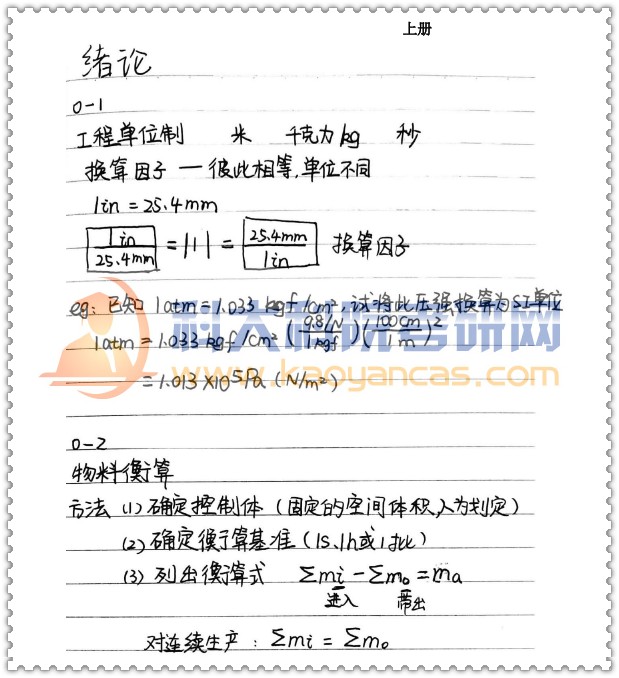 上册
绪论
0-1
工程单位制 米 千克力 kg 秒
换算因子 — 彼此相等,单位不同
1in = 25.4mm
1in/25.4mm = |1| = 25.4mm/1in 换算因子
eg: 已知 1atm = 1.033 kgf/cm², 试将此压强换算为SI单位
1atm = 1.033 kgf/cm² (9.81N/1kgf)(100cm/1m)²
= 1.013×10⁵Pa (N/m²)
科大科院考研网
www.kaoyancas.com
0-2
物料衡算
方法 (1) 确定控制体 (固定的空间体积,人为划定)
(2) 确定衡算基准 (1s、1h或1批)
(3) 列出衡算式 Σmi - Σmo = ma
进入 带出
对连续生产: Σmi = Σmo